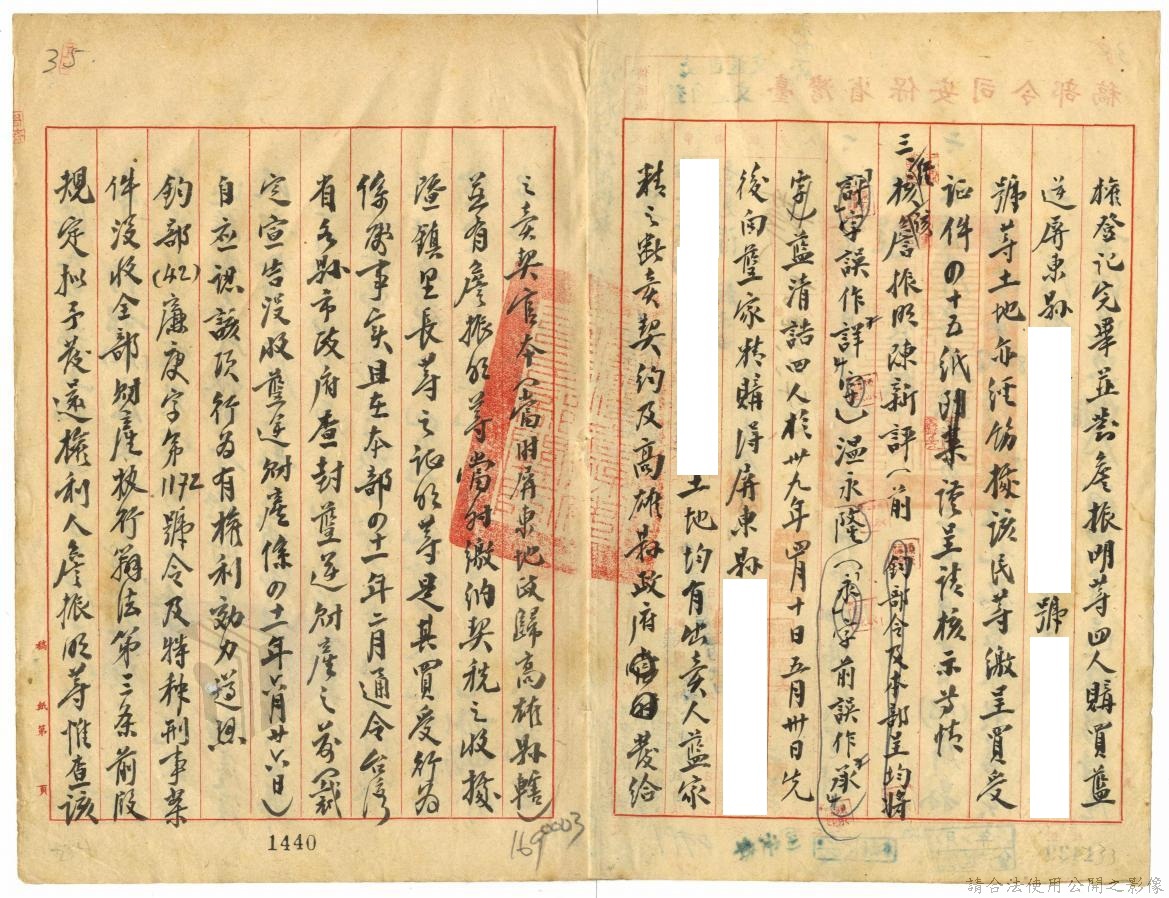 權登記完畢並對詹振明等四人購買藍
逆屏東縣 號
號等土地亦經飭據該民等繳呈買受
証件四十五紙附案謹呈請核示等情
三准核該詹振明陳新評(前 鈞部令及本部呈均將
「評」字誤作「詳」字)溫永隆(「永」字前誤作「承」
字)藍清誥四人於卅九年四月十日五月卅日先
後向藍家精購得屏東縣
土地均有出賣人藍家
精之斷賣契約及高雄縣政府發給
之賣契官本(當時屏東地政歸高雄縣轄)
並有詹振明等當時繳納契稅之收據
暨鎮里長等之証明等是其買受行為
係屬事實且在本部四十一年二月通令台灣
省各縣市政府查封藍逆財產之前(裁
定宣告沒收藍逆財產係四十一年八月廿六日)
自應認該項行為有權利効力遵照
鈞部(42)廉庚字第1172號令及特種刑事案
件沒收全部財產執行辦法第三條前段
規定擬予發還權利人詹振明等惟查該
臺灣省保安司令部稿
稿紙第 頁
35
1440
1690003
請合法使用公開之影像